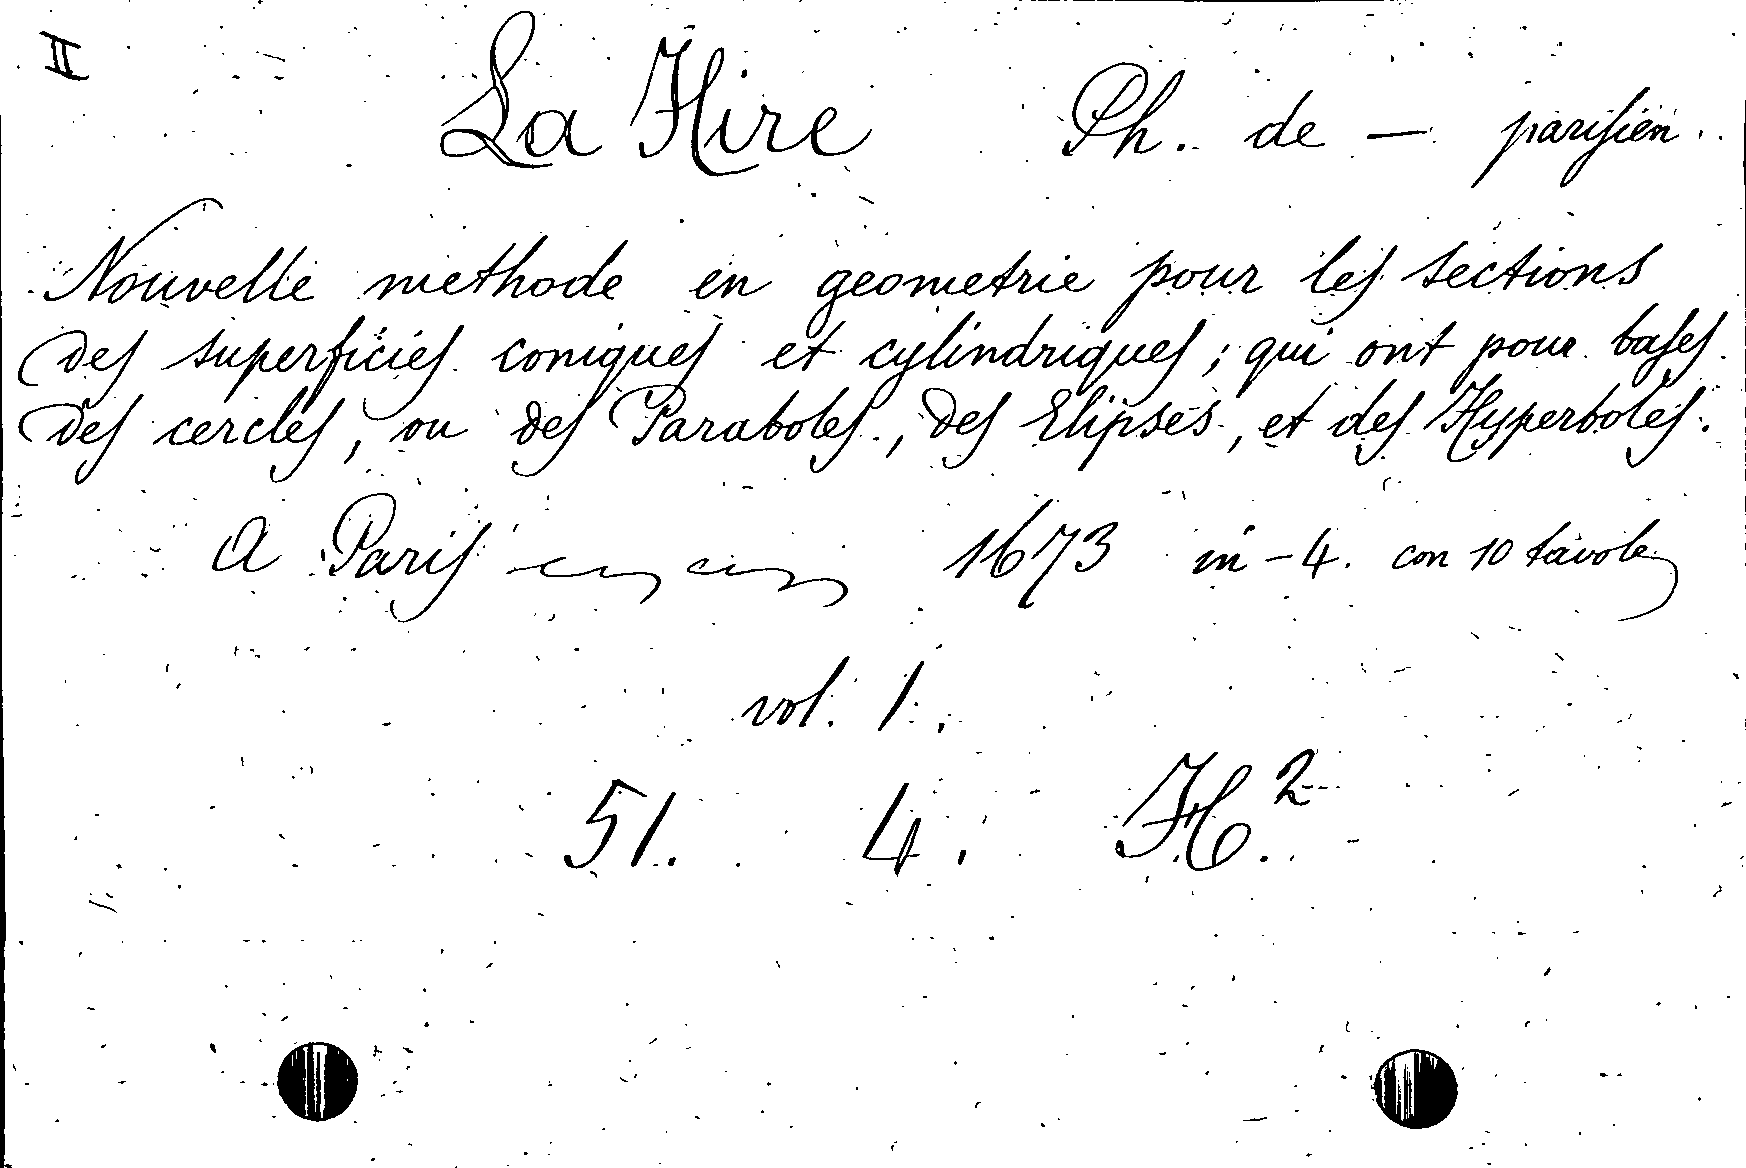 II
La Hire Ph. de — parisien.
Nouvelle methode en geometrie pour les sections
des superficies coniques et cylindriques; qui ont pour bases
des cercles, ou des Paraboles, des Elipses, et des Hyperboles.
A Paris 1673 in-4. con 10 tavole
vol. 1.
51. 4. H².